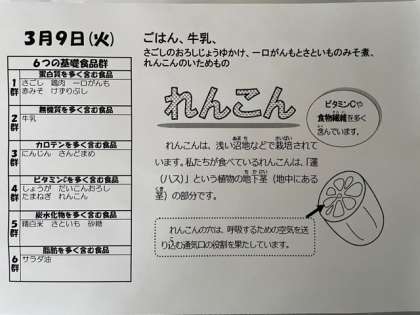 3月9日(火)
6つの基礎食品群
蛋白質を多く含む食品
1群
さごし 鶏肉 一口がんも
赤みそ けずりぶし
無機質を多く含む食品
2群
牛乳
カロテンを多く含む食品
3群
にんじん さんどまめ
ビタミンCを多く含む食品
4群
しょうが だいこんおろし
たまねぎ れんこん
炭水化物を多く含む食品
5群
精白米 さといも 砂糖
脂肪を多く含む食品
6群
サラダ油
ごはん、牛乳、
さごしのおろしじょうゆかけ、一口がんもとさといものみそ煮、
れんこんのいためもの
れんこん
ビタミンCや
食物繊維を多く
含んでいます。
れんこんは、浅い沼地などで栽培されて
います。私たちが食べているれんこんは、「蓮
(ハス)」という植物の地下茎(地中にある
茎)の部分です。
れんこんの穴は、呼吸するための空気を送
り込む通気口の役割を果たしています。